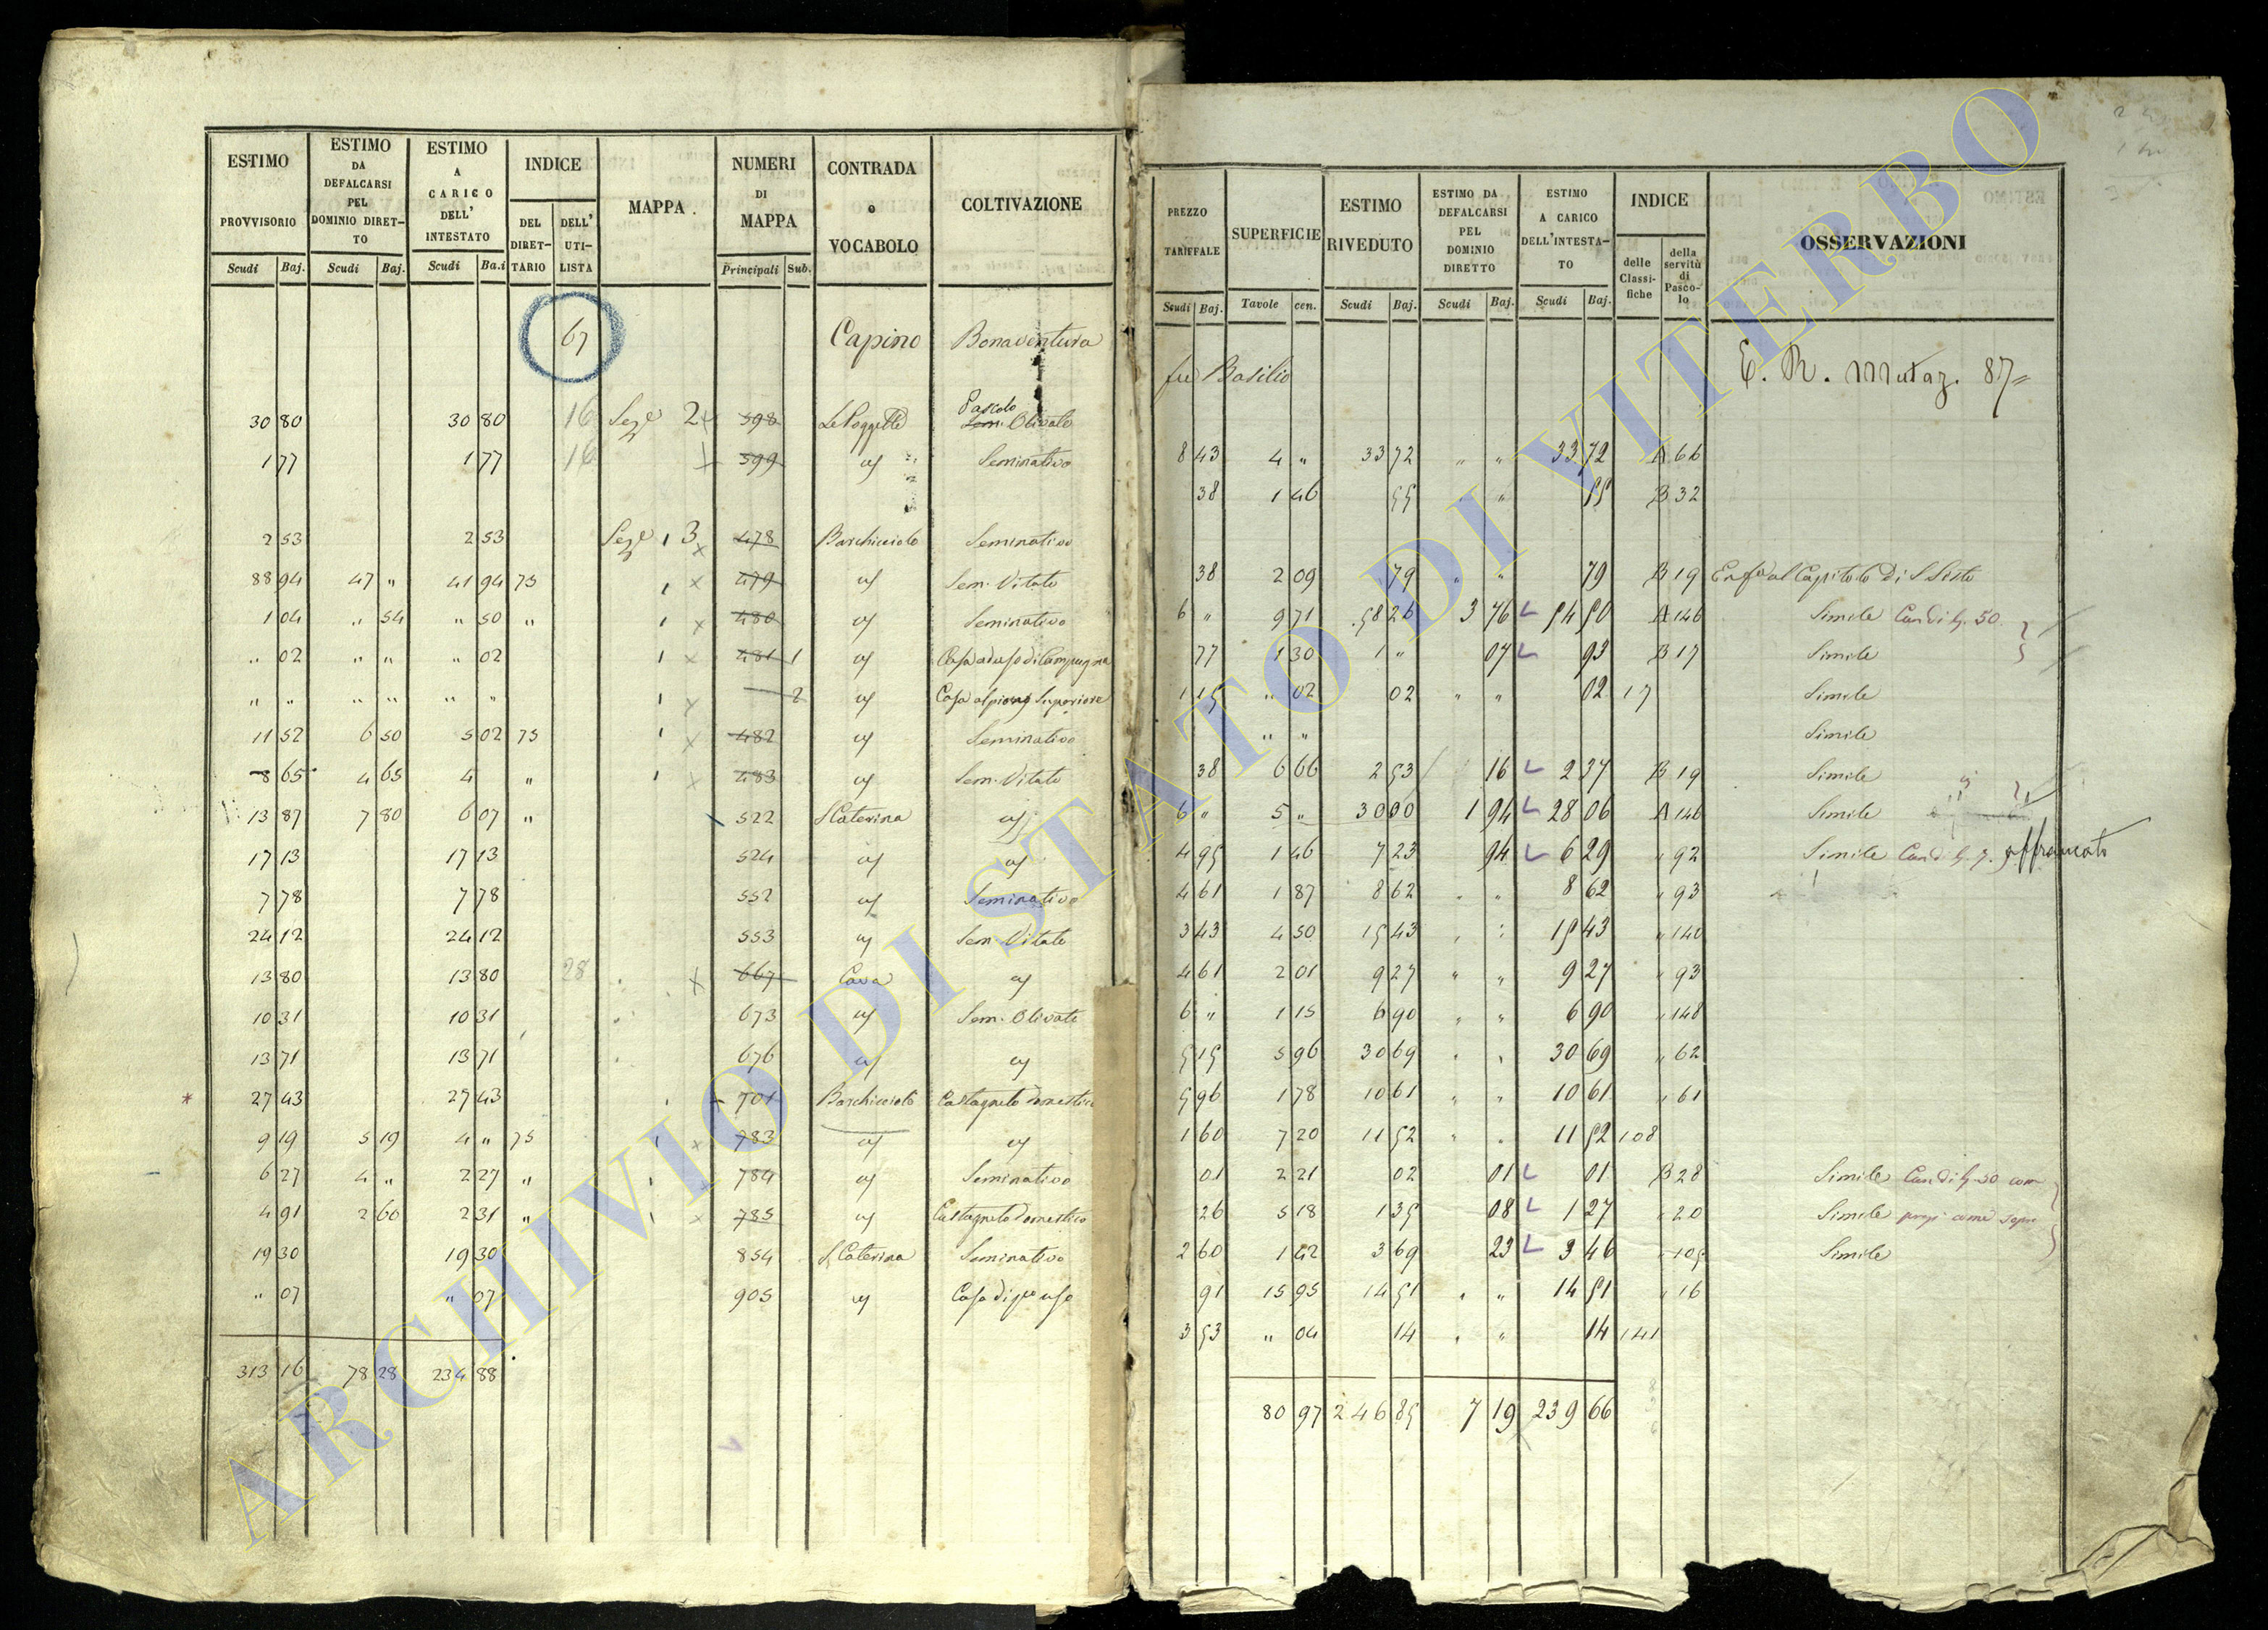 ESTIMO PROVVISORIO | ESTIMO DA DEFALCARSI PEL DOMINIO DIRETTO | ESTIMO A CARICO DELL' INTESTATO | INDICE DEL DIRETTARIO | DELL' UTILISTA | MAPPA. | NUMERI DI MAPPA | CONTRADA o VOCABOLO | COLTIVAZIONE
Scudi Baj. Scudi Baj. Scudi Ba.i Principali Sub.
67 Capino Bonaventura
30 80 30 80 16 Seze 2 598 Le Poggette Pascolo Sem. Olivato
1 77 1 77 16 599 Seminativo
2 53 2 53 Seze 3 478 Barchicciolo Seminativo
88 94 47 " 41 94 75 479 Sem. Vitato
1 04 " 54 " 50 " 480 Seminativo
" 02 " " " 02 481 1 Casa ad uso di Campagna
" " " " " " 2 Casa al piano Superiore
11 52 6 50 5 02 75 482 Seminativo
8 65 4 65 4 " 483 Sem. Vitato
13 87 7 80 6 07 " 522 S Caterina
17 13 17 13 524
7 78 7 78 552 Seminativo
24 12 24 12 553 Sem. Vitato
13 80 13 80 28 667 Cava
10 31 10 31 673 Sem. Olivato
13 71 13 71 676
27 43 27 43 701 Barchicciolo Castagneto domestico
9 19 5 19 4 " 75 783
6 27 4 " 2 27 " 784 Seminativo
4 91 2 60 2 31 " 785 Castagneto domestico
19 30 19 30 854 S Caterina Seminativo
" 07 " 07 905 Casa di pro uso
313 16 78 28 234 88
PREZZO TARIFFALE | SUPERFICIE | ESTIMO RIVEDUTO | ESTIMO DA DEFALCARSI PEL DOMINIO DIRETTO | ESTIMO A CARICO DELL'INTESTATO | INDICE delle Classifiche | della servitù di Pascolo | OSSERVAZIONI
Scudi Baj. Tavole cen. Scudi Baj. Scudi Baj. Scudi Baj.
fu Basilio E. R. Mutaz. 87
8 43 4 " 33 72 " " 33 72 A 66
38 1 46 55 " 55 B 32
38 2 09 79 " " 79 B 19 Enf. al Capitolo di S Sisto
6 " 9 71 58 26 3 76 54 50 A 146 Simile 50
77 1 30 1 " 07 93 B 17 Simile
1 15 " 02 02 " " 02 17 Simile
" " Simile
38 6 66 2 53 16 2 37 B 19 Simile
6 " 5 " 30 00 1 94 28 06 A 146 Simile
4 95 1 46 7 23 94 6 29 " 92 Simile affrancato
4 61 1 87 8 62 " " 8 62 " 93
3 43 4 50 15 43 " " 15 43 " 140
4 61 2 01 9 27 " " 9 27 " 93
6 " 1 15 6 90 " " 6 90 " 148
5 15 5 96 30 69 " " 30 69 " 62
5 96 1 78 10 61 " " 10 61 " 61
1 60 7 20 11 52 " " 11 52 108
01 2 21 02 01 01 B 28 Simile
26 5 18 1 35 08 1 27 " 20 Simile come sopra
2 60 1 42 3 69 23 3 46 " 105 Simile
91 15 95 14 51 " " 14 51 " 16
3 53 " 04 14 " " 14 141
80 97 246 85 7 19 239 66
ARCHIVIO DI STATO DI VITERBO